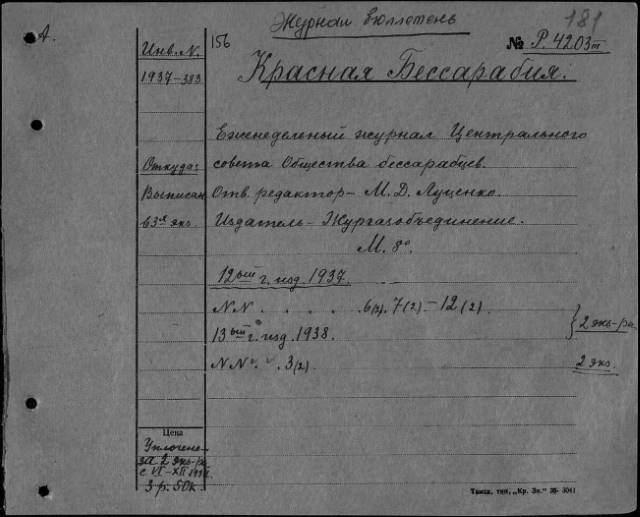 Журнал бюллетень
181
А.
Инв. N.
156
№ Р. 4203 III
1937-383
Красная Бессарабия.
Еженедельный журнал Центрального
Откуда:
совета Общества бессарабцев.
Выписан
Отв. редактор - М. Д. Луценко.
в 3х экз.
Издатель - Жургазобъединение.
М. 8°.
12ый г. изд. 1937.
NN . . . . . 6(2), 7(2) - 12(2)
2 экз-ра
13ый г. изд. 1938.
NN . . . 3(2)
2 экз.
Цена
Уплочено
за 2 экз-ра
с VI-XII
3 р. 50к
Тамса, тип. „Кр. Зн." 36- 3041